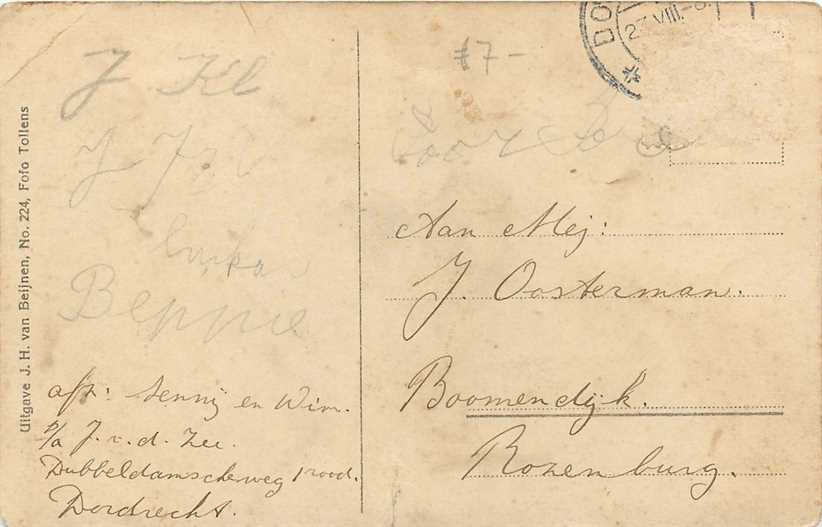 Uitgave J. H. van Beijnen, No. 224, Foto Tollens
J Kl
J
Beppie
afz: Jenny en Wim.
p/a J. v. d. Zee.
Dubbeldamscheweg rood.
Dordrecht.
DO
27 VIII
#7-
voor
Aan Mej:
J. Oosterman.
Boomendijk.
Rozenburg.